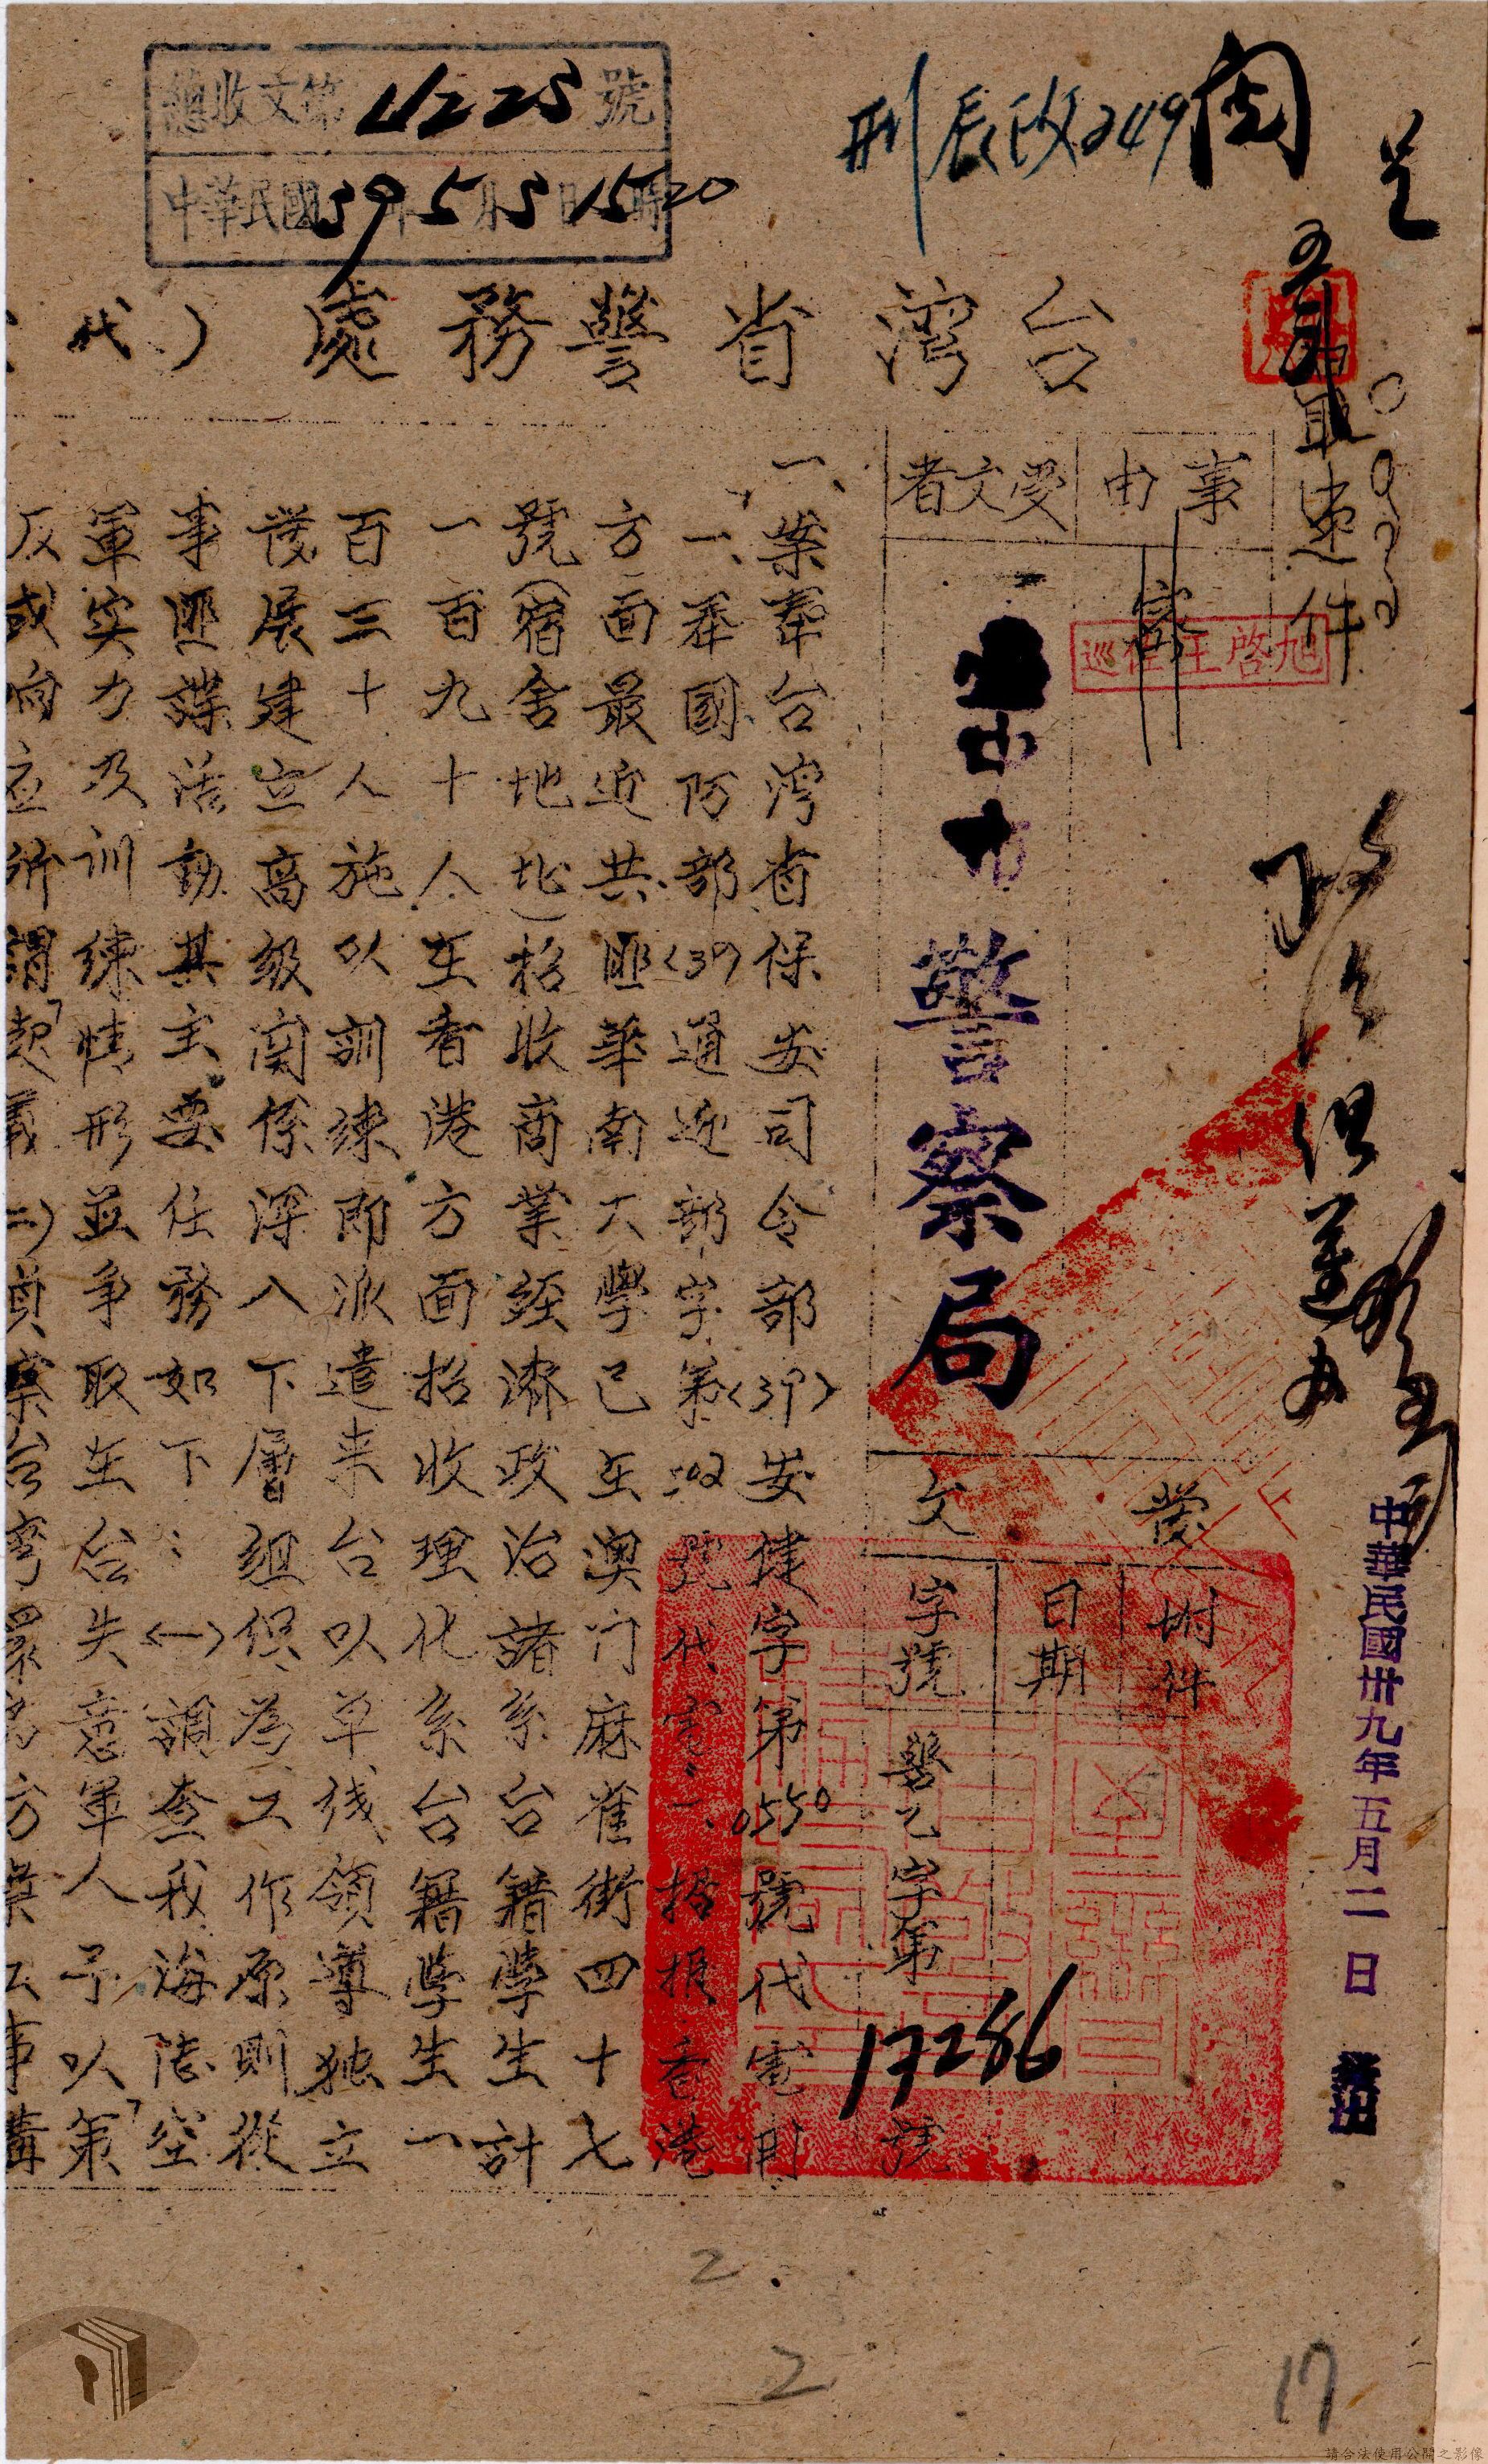 總收文第4225號
中華民國39年5月5日15時20
刑辰改249
閱
最速件
台灣省警務處(代
事由
受文者
巡佐王啓旭
警察局
發文
附件
日期
字號
警乙字第17286號
中華民國卅九年五月二日
一、案奉台灣省保安司令部(39)安健字第0550號代電開
一、奉國防部(39)通迎部字第202號代電一、據報香港
方面最近共匪華南大學已在澳门麻雀街四十七
號(宿舍地址)招收商業經濟政治諸系台籍學生計
一百九十人在香港方面招收理化系台籍學生一
百三十人施以訓練即派遣来台以单线領導独立
發展建立高級関係深入下層組織為工作原則從
事匪諜活動其主要任務如下:(一)調查我海陸空
軍实力及训練情形並爭取在台失意軍人予以「策
反或向应所謂「起義」(二)偵察台灣
2
2
17
請合法使用公開之影像